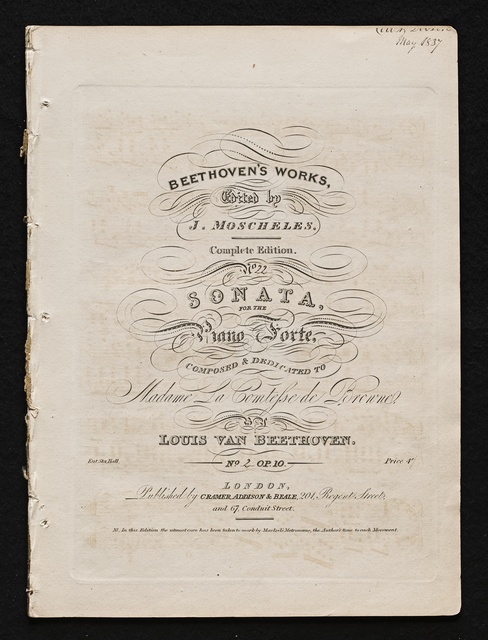 May 1837
BEETHOVEN'S WORKS,
Edited by
J. MOSCHELES.
Complete Edition.
No. 22
SONATA,
FOR THE
Piano Forte,
COMPOSED & DEDICATED TO
Madame La Comtesse de Browne,
BY
LOUIS VAN BEETHOVEN.
Ent. Sta. Hall.
No. 2 OP. 10.
Price 4/
LONDON,
Published by CRAMER, ADDISON & BEALE, 201, Regent Street,
and 67, Conduit Street.
NB. In this Edition the utmost care has been taken to mark by Maelzel's Metronome, the Author's time to each Movement.